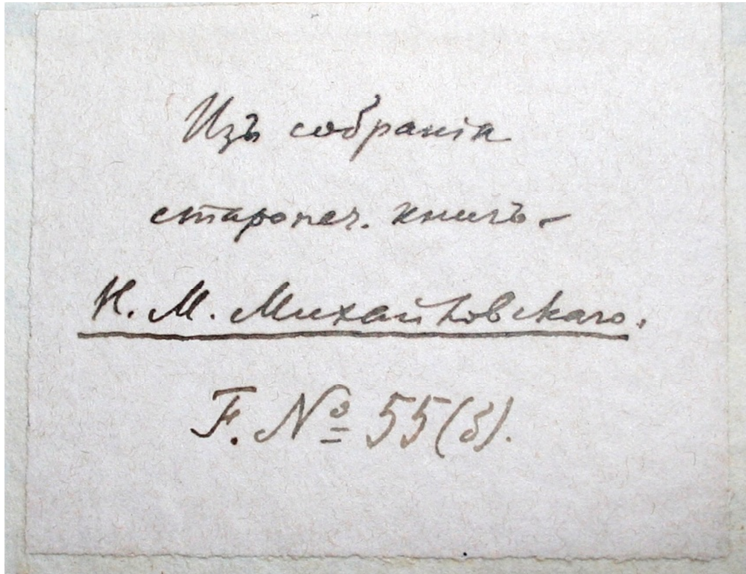 Изъ собранія
старопеч. книгъ
Н. М. Михайловскаго.
F. № 55(б).